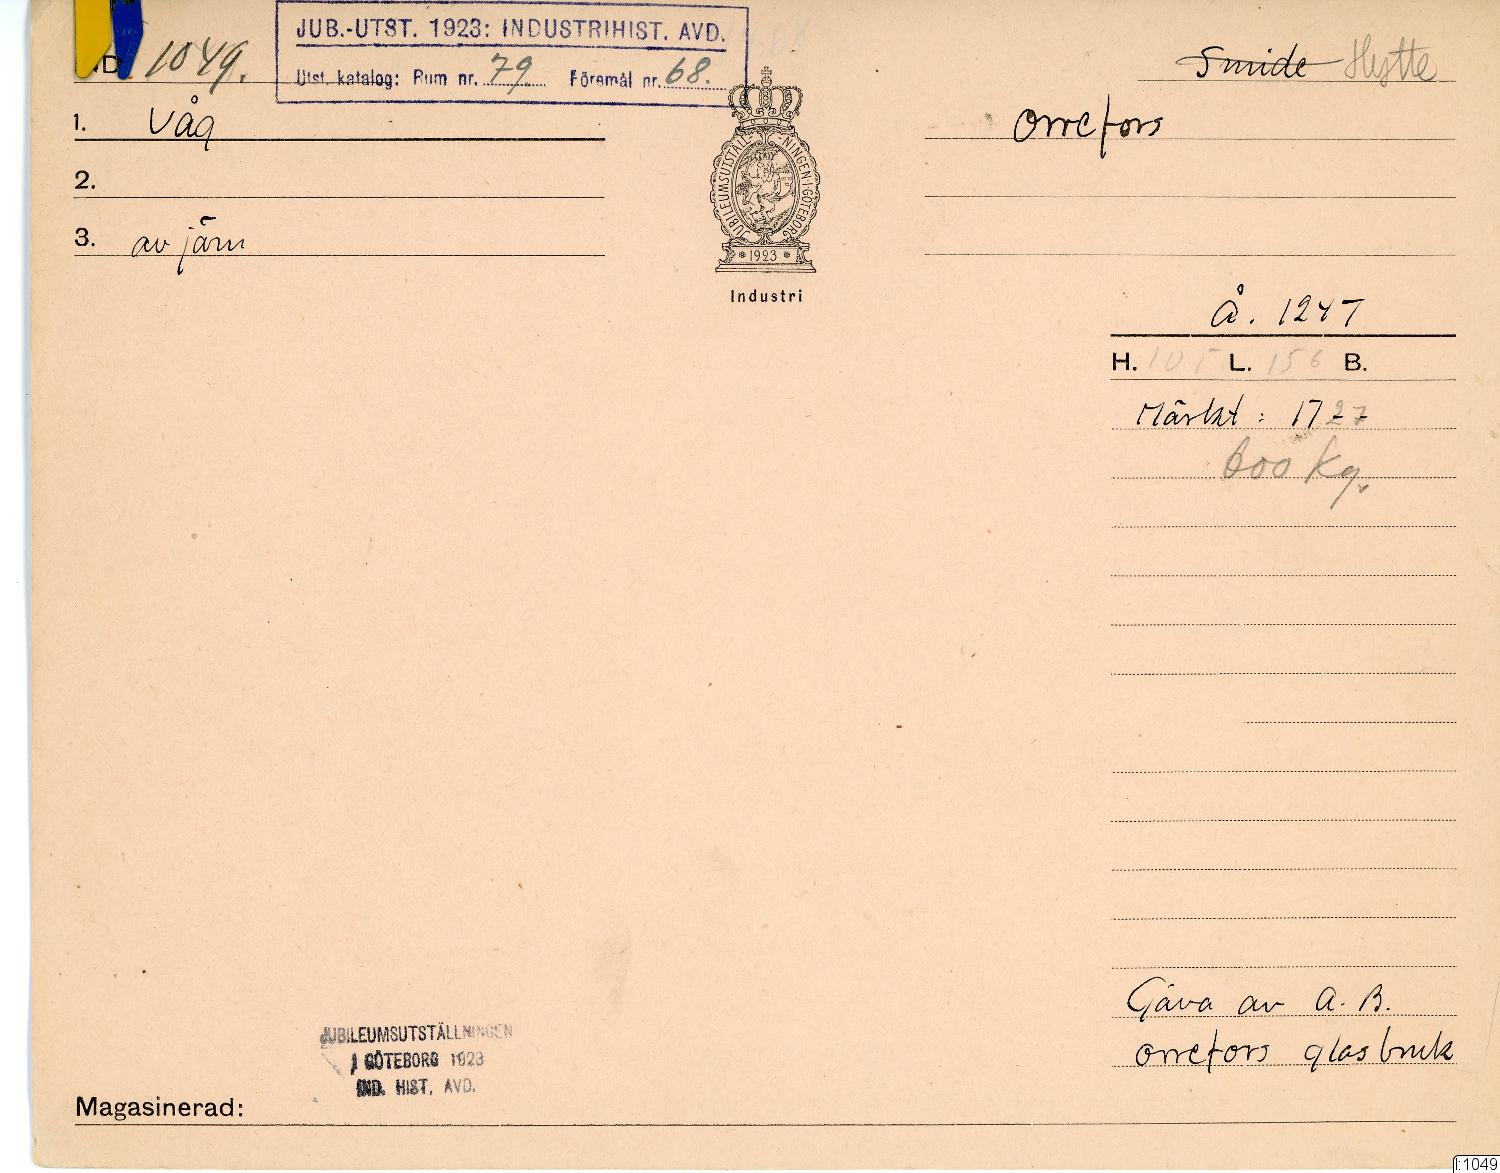 JUB.-UTST. 1923: INDUSTRIHIST. AVD.
Utst. katalog: Rum nr. 79 Föremål nr. 68.
1049.
Smide Hytte
1. Våg
Orrefors
2.
3. av järn
JUBILEUMSUTSTÄLLNINGEN I GÖTEBORG
* 1923 *
Industri
Å. 1247
H. 105 L. 156 B.
Märkt: 1727
600 kg.
Gåva av A. B.
Orrefors glasbruk
JUBILEUMSUTSTÄLLNINGEN
I GÖTEBORG 1923
IND. HIST. AVD.
Magasinerad:
I:1049